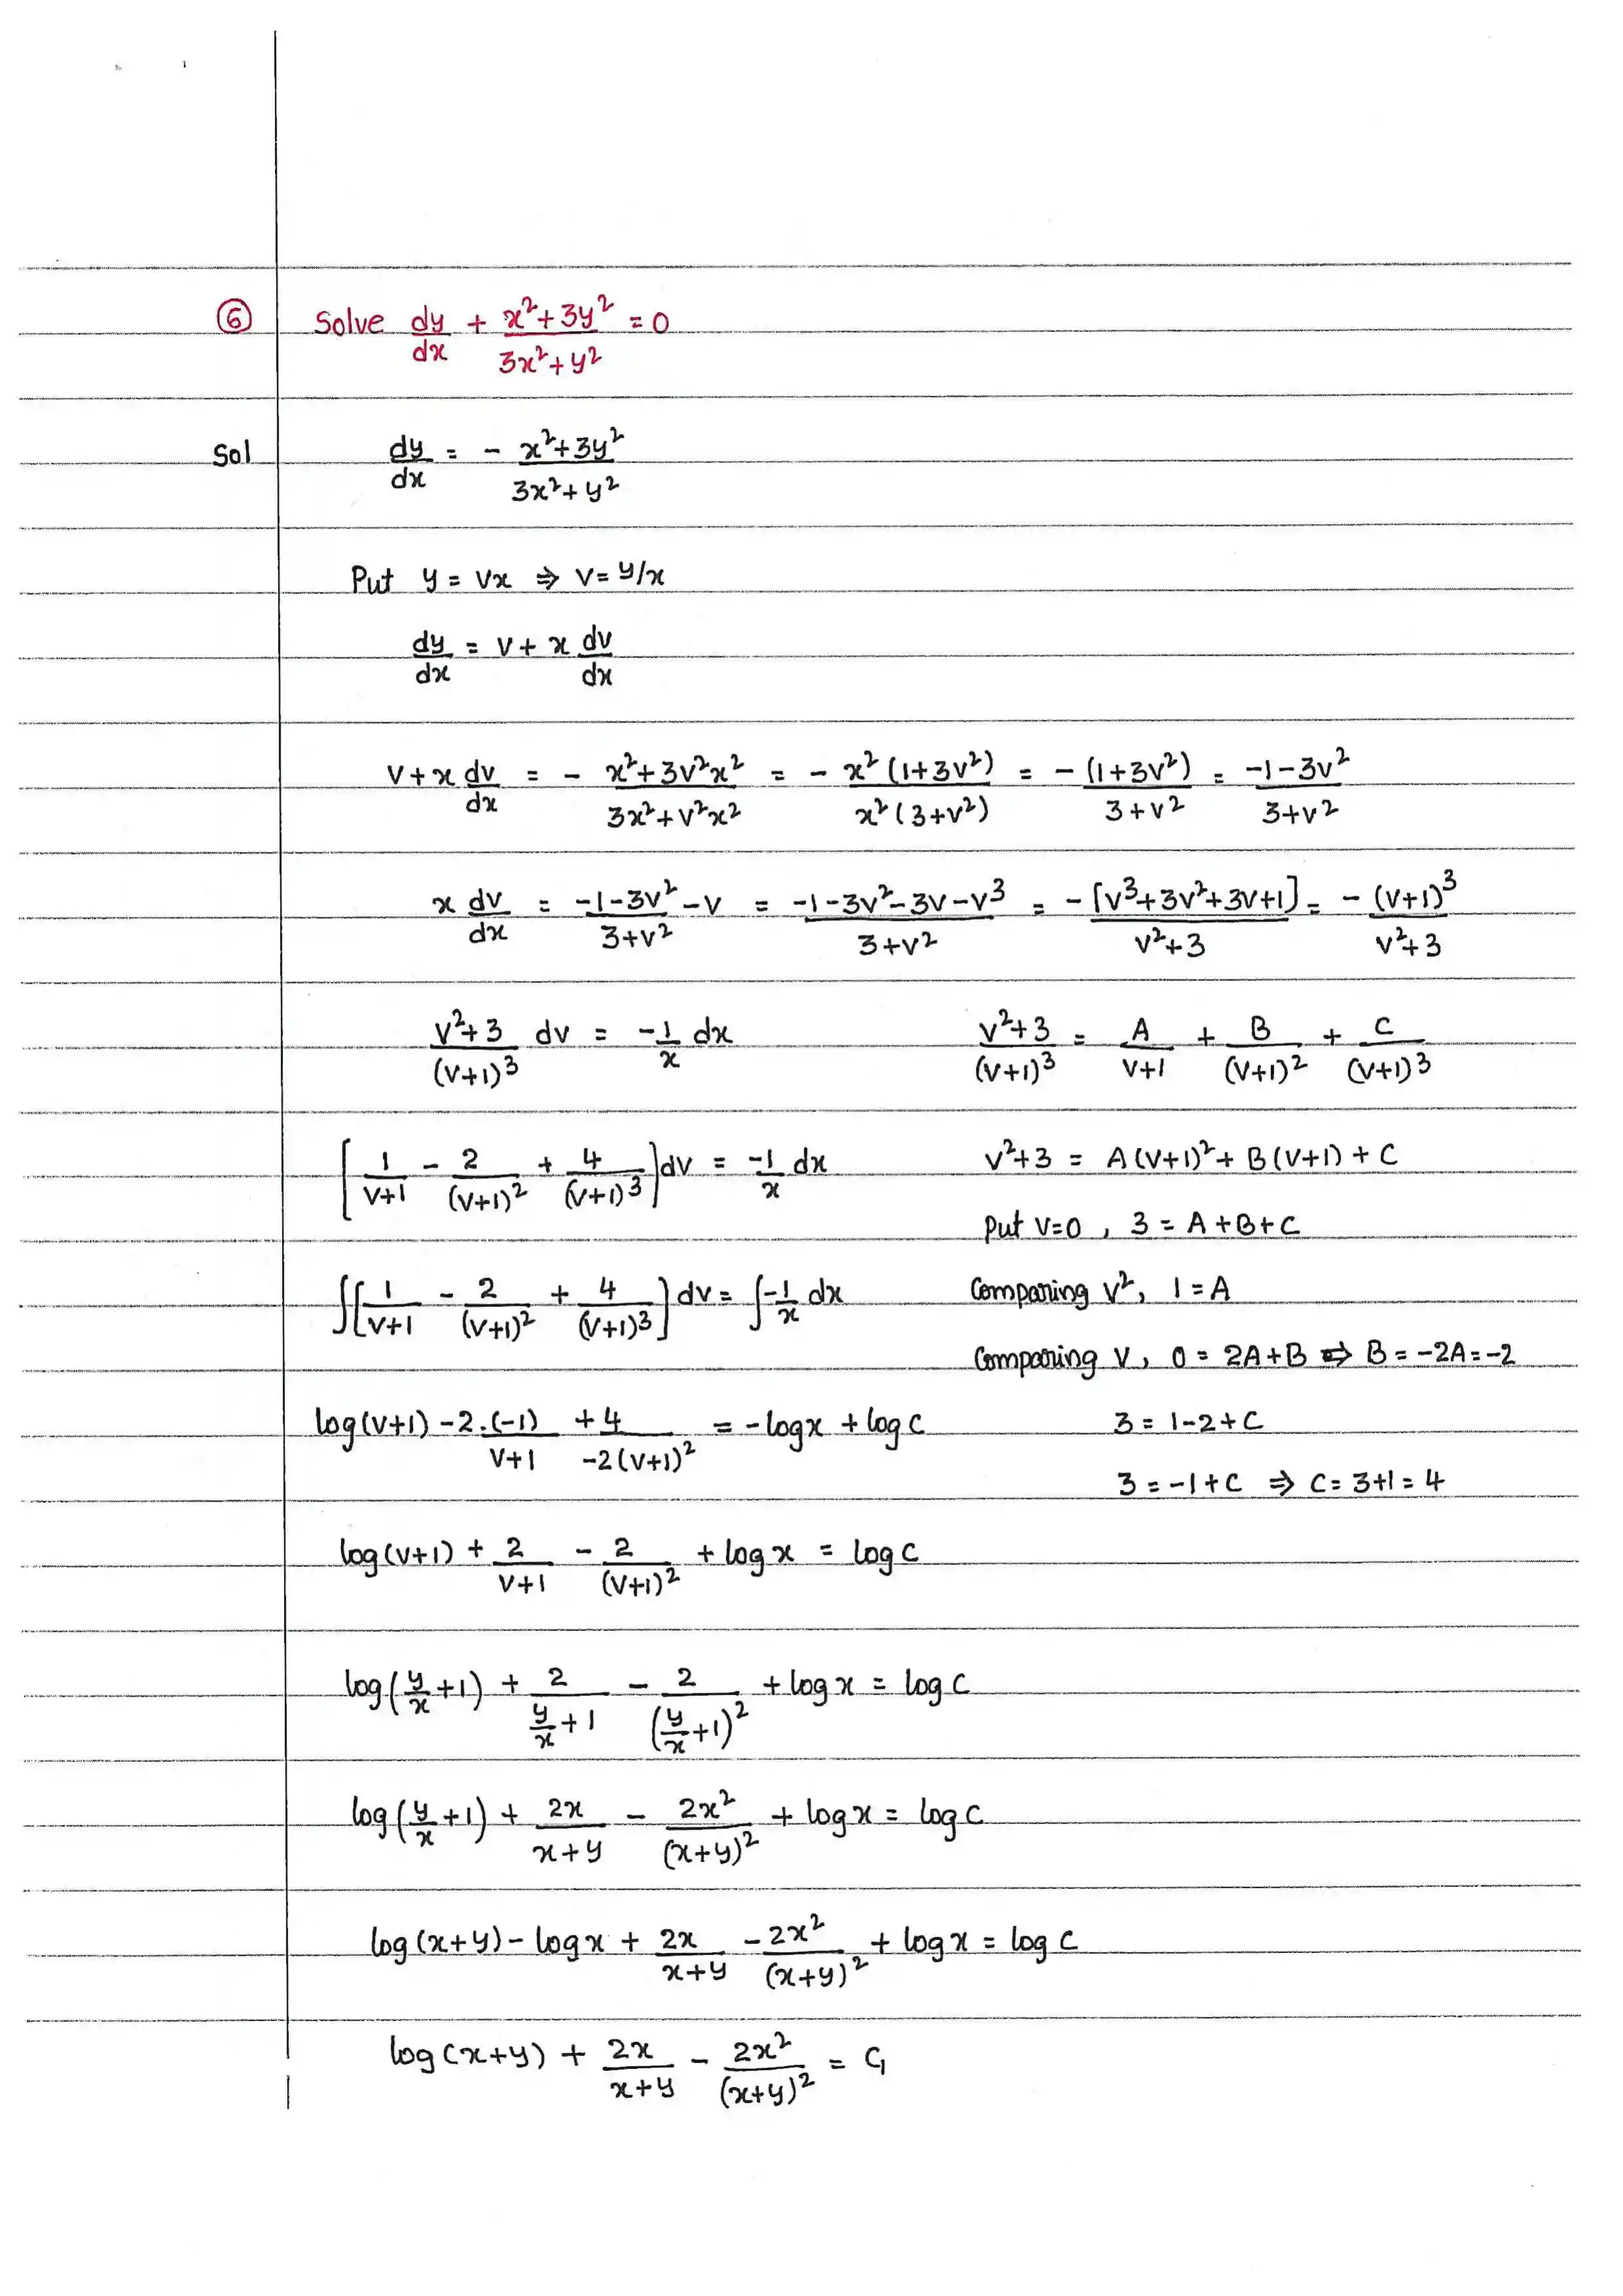 ⑥ Solve dy/dx + (x²+3y²)/(3x²+y²) = 0
Sol dy/dx = - (x²+3y²)/(3x²+y²)
Put y = vx ⇒ v = y/x
dy/dx = v + x dv/dx
v + x dv/dx = - (x²+3v²x²)/(3x²+v²x²) = - x²(1+3v²)/x²(3+v²) = - (1+3v²)/(3+v²) = (-1-3v²)/(3+v²)
x dv/dx = (-1-3v²)/(3+v²) - v = (-1-3v²-3v-v³)/(3+v²) = - [v³+3v²+3v+1]/(v²+3) = - (v+1)³/(v²+3)
(v²+3)/(v+1)³ dv = -1/x dx
(v²+3)/(v+1)³ = A/(v+1) + B/(v+1)² + C/(v+1)³
[1/(v+1) - 2/(v+1)² + 4/(v+1)³] dv = -1/x dx
v²+3 = A(v+1)² + B(v+1) + C
Put v=0 , 3 = A+B+C
∫[1/(v+1) - 2/(v+1)² + 4/(v+1)³] dv = ∫-1/x dx
Comparing v², 1 = A
Comparing v, 0 = 2A+B ⇒ B = -2A = -2
log(v+1) - 2.(-1)/(v+1) + 4/(-2(v+1)²) = - log x + log c
3 = 1-2+C
3 = -1+C ⇒ C = 3+1 = 4
log(v+1) + 2/(v+1) - 2/(v+1)² + log x = log c
log(y/x +1) + 2/(y/x +1) - 2/(y/x +1)² + log x = log c
log(y/x +1) + 2x/(x+y) - 2x²/(x+y)² + log x = log c
log(x+y) - log x + 2x/(x+y) - 2x²/(x+y)² + log x = log c
log(x+y) + 2x/(x+y) - 2x²/(x+y)² = c₁